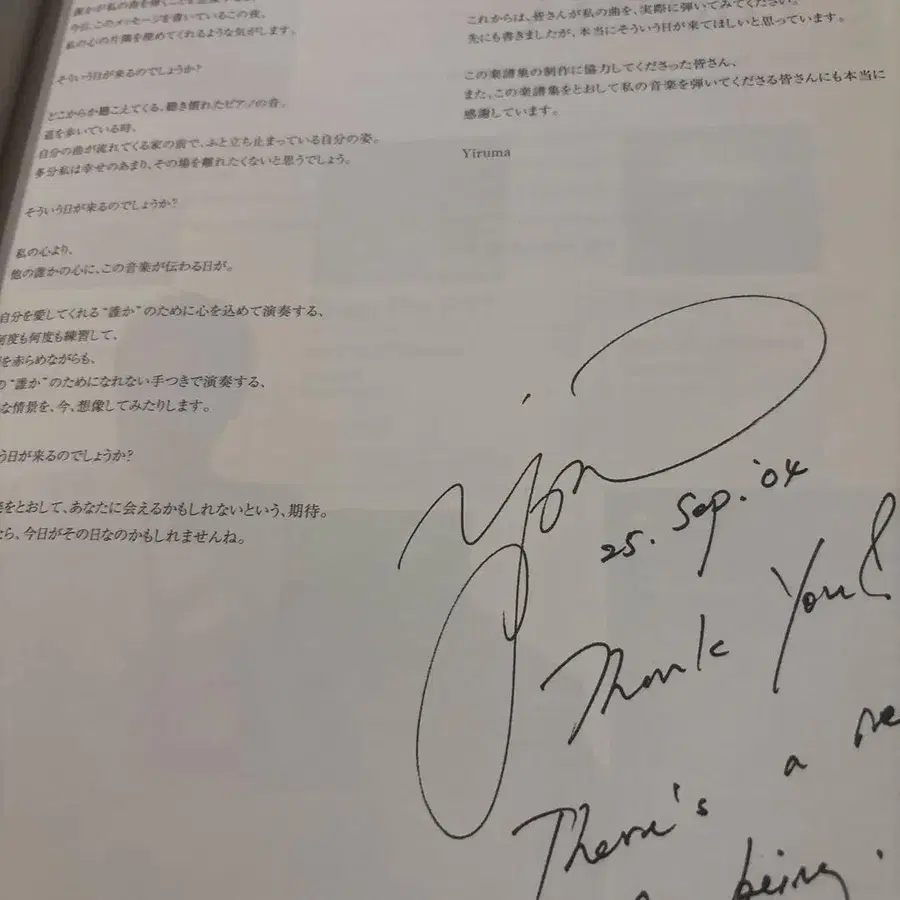 誰かが私の曲を弾くことを想像すると、
今日、このメッセージを書いているこの夜、
私の心の片隅を埋めてくれるような気がします。
そういう日が来るのでしょうか?
どこからか聴こえてくる、聴き慣れたピアノの音。
道を歩いている時、
自分の曲が流れてくる家の前で、ふと立ち止まっている自分の姿。
多分私は幸せのあまり、その場を離れたくないと思うでしょう。
そういう日が来るのでしょうか?
私の心より、
他の誰かの心に、この音楽が伝わる日が。
自分を愛してくれる“誰か”のために心を込めて演奏する、
何度も何度も練習して、
を赤らめながらも、
の“誰か”のためになれない手つきで演奏する、
な情景を、今、想像してみたりします。
う日が来るのでしょうか?
をとおして、あなたに会えるかもしれないという、期待。
ら、今日がその日なのかもしれませんね。
これからは、皆さんが私の曲を、実際に弾いてみてください。
先にも書きましたが、本当にそういう日が来てほしいと思っています。
この楽譜集の制作に協力してくださった皆さん、
また、この楽譜集をとおして私の音楽を弾いてくださる皆さんにも本当に
感謝しています。
Yiruma
25. Sep. '04
Thank You!
There's a re
being.